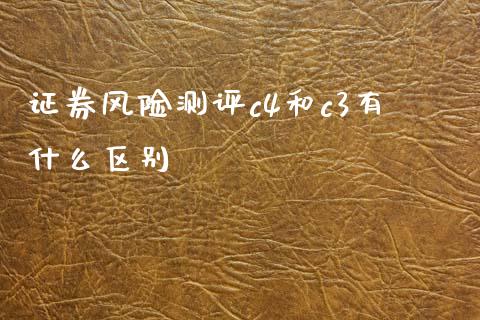 证券风险测评c4和c3有
什么区别